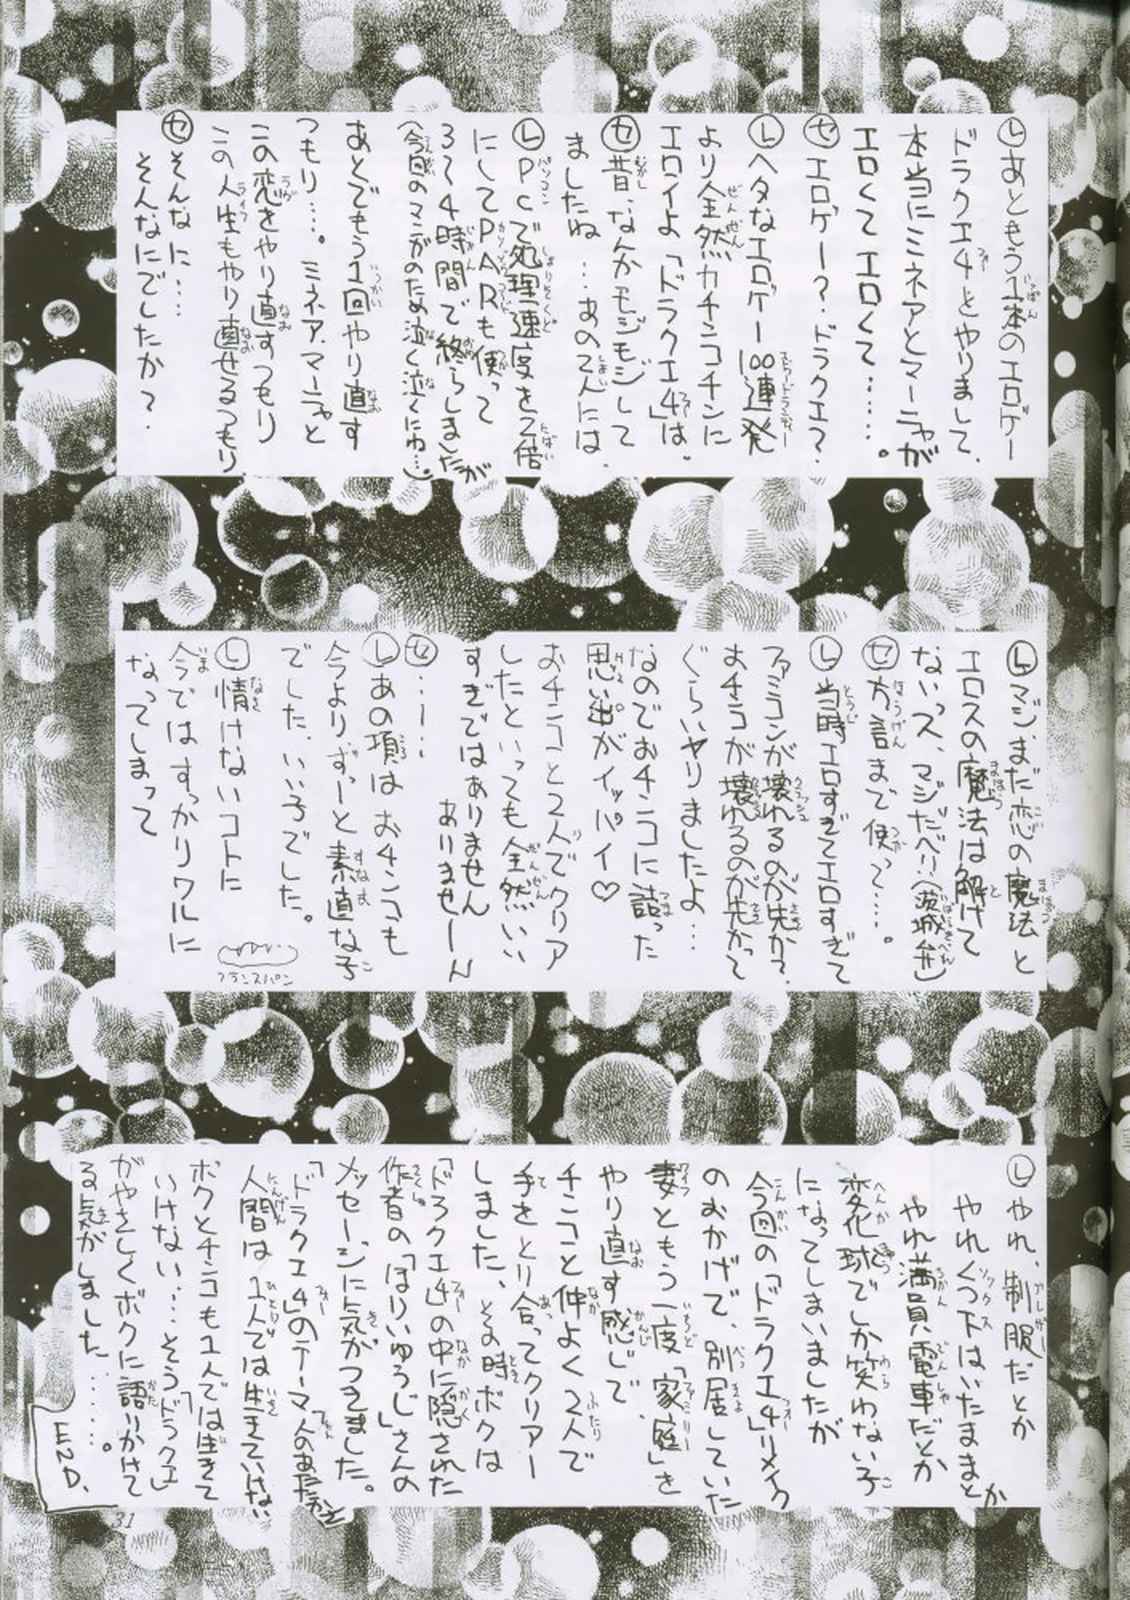 Ⓛあともう1本のエロゲー
ドラクエ4とやりまして、
本当にミネアとマーニャが
エロくてエロくて……。
Ⓢエロゲー?ドラクエ?
Ⓛヘタなエロゲー100連発
より全然カチンコチンに
エロイよ「ドラクエ4」は。
Ⓢ昔、なんかモジモジして
ましたね…あの2人には。
ⓁPCで処理速度を2倍
にしてPARも使って
34時間で終らしましたが
(今回のマンガのため泣く泣くにね…。)
あとでもう1回やり直す
つもり…。ミネア、マーニャと
この恋をやり直すつもり
この人生もやり直せるつもり
Ⓢそんなに……
そんなにでしたか?
Ⓛマジ、まだ恋の魔法と
エロスの魔法は解けて
ないっス、マジだべ!!(茨城弁)
Ⓢ方言まで使って……。
Ⓛ当時エロすぎてエロすぎて
ファミコンが壊れるのが先か?
おチンコが壊れるのが先かって
ぐらいヤリましたよ…
なのでおチンコに詰った
思い出がイッパイ♡
おチンコと2人でクリア
したといっても全然いい
すぎではありません
ありませーん
Ⓢ……
Ⓛあの頃はおチンコも
今よりずっーと素直な子
でした。いい子でした。
Ⓛ情けないコトに
今ではすっかりワルに
なってしまって
フランスパン
Ⓛやれ、制服だとか
やれくつ下はいたままとか
やれ満員電車だとか
変化球でしか笑わない子
になってしまいましたが
今回の「ドラクエ4」リメイク
のおかげで、別居していた
妻ともう一度「家庭」を
やり直す感じで、
チンコと仲よく2人で
手をとり合ってクリアー
しました、その時ボクは
「ドラクエ4」の中に隠された
作者の「ほりいゆうじ」さんの
メッセージに気がつきました。
「ドラクエ4」のテーマ「人のあたたかさ」
人間は1人では生きていけない
ボクとチンコも1人では生きて
いけない…そう「ドラクエ」
がやさしくボクに語りかけて
る気がしました……。
END.
31